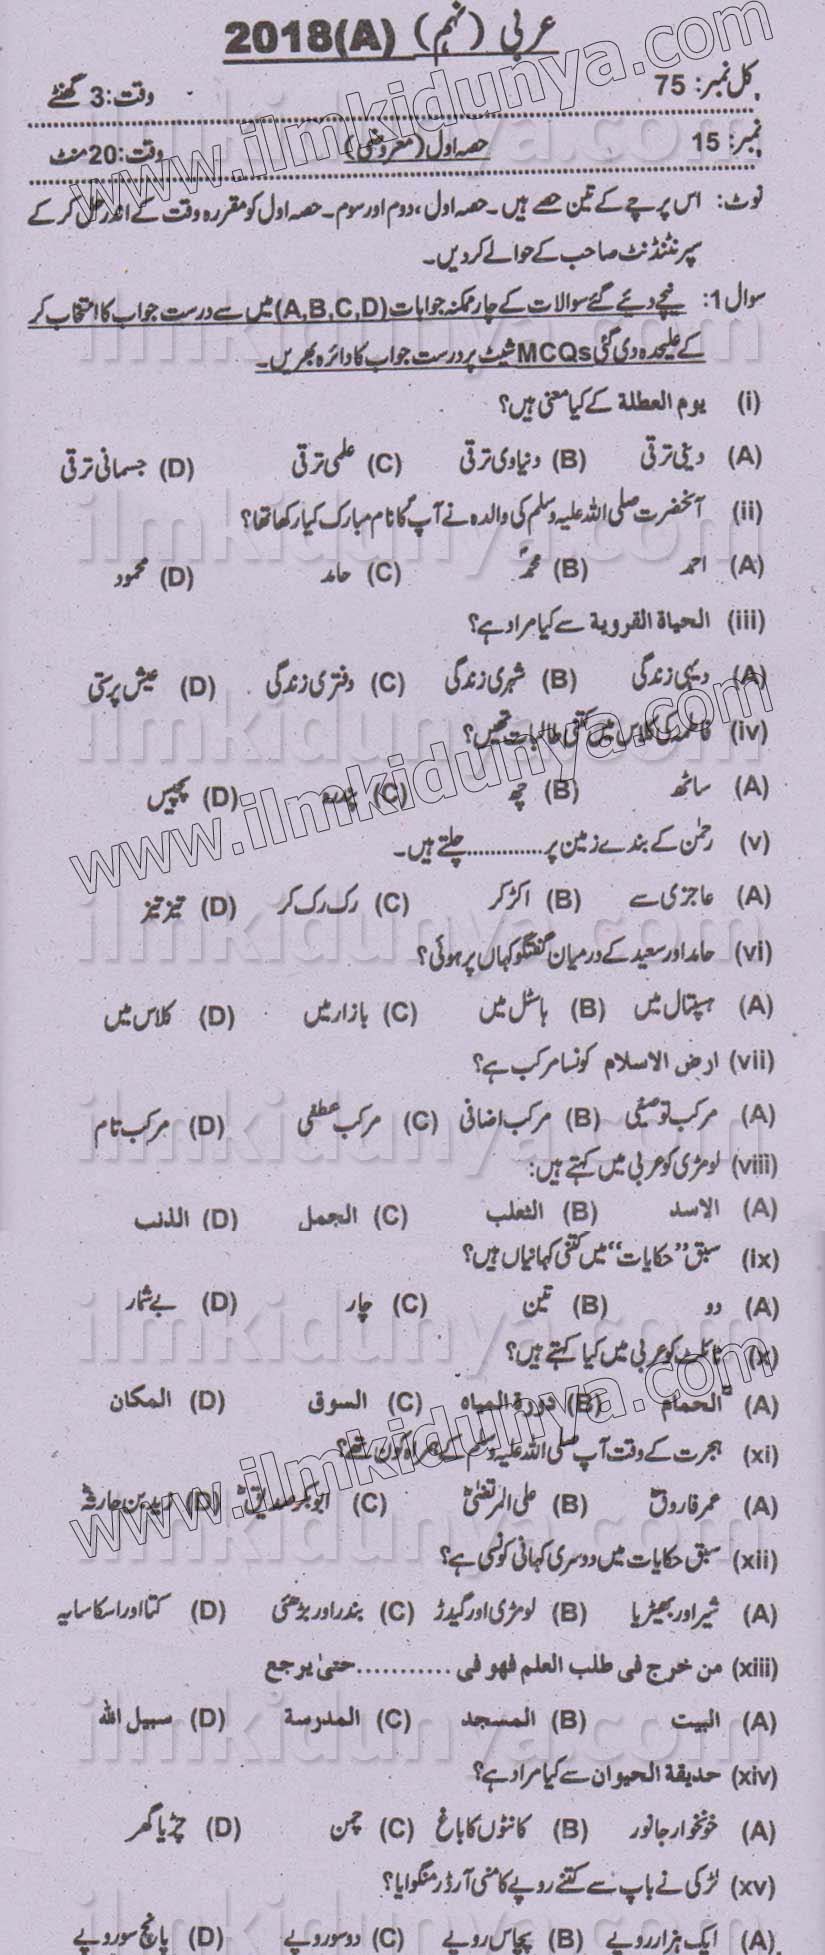 عربی (نہم) 2018(A)
کل نمبر: 75 وقت: 3 گھنٹے
نمبر: 15 حصہ اول (معروضی) وقت: 20 منٹ
نوٹ: اس پرچے کے تین حصے ہیں۔ حصہ اول، دوم اور سوم۔ حصہ اول کو مقررہ وقت کے اندر حل کر کے
سپرنٹنڈنٹ صاحب کے حوالے کردیں۔
سوال 1: نیچے دئیے گئے سوالات کے چار ممکنہ جوابات (A,B,C,D) میں سے درست جواب کا انتخاب کر
کے علیحدہ دی گئی MCQs شیٹ پر درست جواب کا دائرہ بھریں۔
(i) یوم العطلة کے کیا معنی ہیں؟
(A) دینی ترقی (B) دنیاوی ترقی (C) علمی ترقی (D) جسمانی ترقی
(ii) آنحضرت صلی اللہ علیہ وسلم کی والدہ نے آپؐ کا نام مبارک کیا رکھا تھا؟
(A) احمد (B) محمدؐ (C) حامد (D) محمود
(iii) الحیاة القرویة سے کیا مراد ہے؟
(A) دیہی زندگی (B) شہری زندگی (C) دفتری زندگی (D) عیش پرستی
(iv) فاطمہ کی کلاس میں کتنی طالبات تھیں؟
(A) ساٹھ (B) چھ (C) پندرہ (D) پچیس
(v) رحمٰن کے بندے زمین پر............چلتے ہیں۔
(A) عاجزی سے (B) اکڑ کر (C) رک رک کر (D) تیز تیز
(vi) حامد اور سعید کے درمیان گفتگو کہاں پر ہوئی؟
(A) ہسپتال میں (B) ہاسٹل میں (C) بازار میں (D) کلاس میں
(vii) ارض الاسلام کونسا مرکب ہے؟
(A) مرکب توصیفی (B) مرکب اضافی (C) مرکب عطفی (D) مرکب تام
(viii) لومڑی کو عربی میں کہتے ہیں:
(A) الاسد (B) الثعلب (C) الجمل (D) الذئب
(ix) سبق "حکایات" میں کتنی کہانیاں ہیں؟
(A) دو (B) تین (C) چار (D) بے شمار
(x) ٹائلٹ کو عربی میں کیا کہتے ہیں؟
(A) الحمام (B) دورة المیاہ (C) السوق (D) المکان
(xi) ہجرت کے وقت آپ صلی اللہ علیہ وسلم کے ہمراہ کون تھے؟
(A) عمر فاروقؓ (B) علی المرتضیٰؓ (C) ابوبکر صدیقؓ (D) زید بن حارثہؓ
(xii) سبق حکایات میں دوسری کہانی کونسی ہے؟
(A) شیر اور بھیڑیا (B) لومڑی اور گیدڑ (C) بندر اور بڑھئی (D) کتا اور اسکا سایہ
(xiii) من خرج فی طلب العلم فھو فی ........... حتیٰ یرجع
(A) البیت (B) المسجد (C) المدرسة (D) سبیل اللہ
(xiv) حدیقة الحیوان سے کیا مراد ہے؟
(A) خونخوار جانور (B) کانٹوں کا باغ (C) چمن (D) چڑیا گھر
(xv) لڑکی نے باپ سے کتنے روپے کا منی آرڈر منگوایا؟
(A) ایک ہزار روپے (B) پچاس روپے (C) دو سو روپے (D) پانچ سو روپے
www.ilmkidunya.com
www.ilmkidunya.com
www.ilmkidunya.com